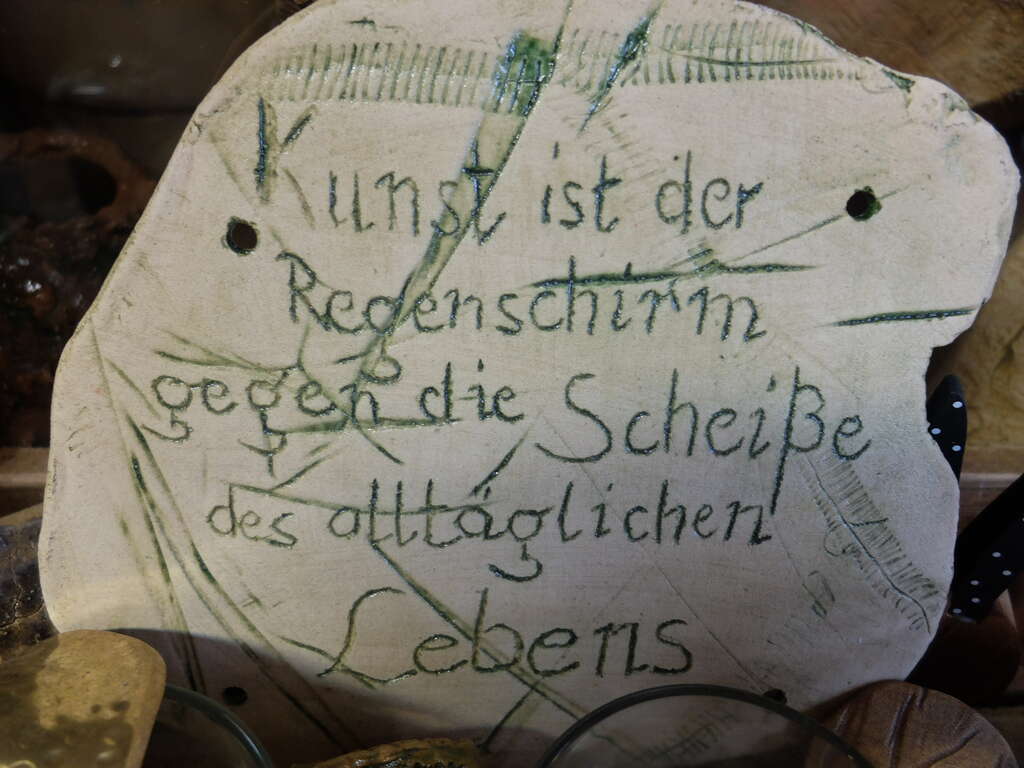 Kunst ist der
Regenschirm
gegen die Scheiße
des alltäglichen
Lebens